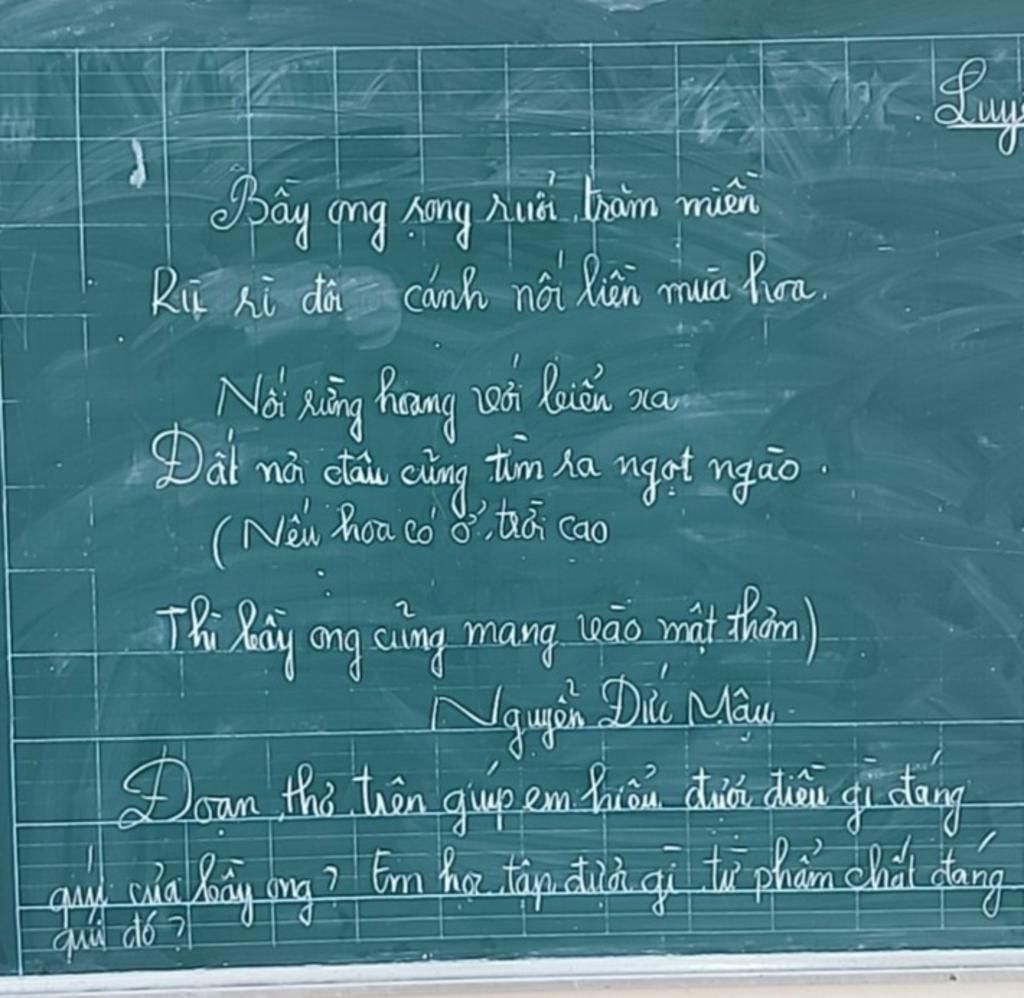 Luyệ
Bầy ong rong ruổi trăm miền
Rù rì đôi cánh nối liền mùa hoa.
Nối rừng hoang với biển xa
Đất nơi đâu cũng tìm ra ngọt ngào.
(Nếu hoa có ở trời cao
Thì bầy ong cũng mang vào mật thơm)
Nguyễn Đức Mậu
Đoạn thơ trên giúp em hiểu được điều gì đáng
quý của bầy ong? Em học tập được gì từ phẩm chất đáng
quí đó?